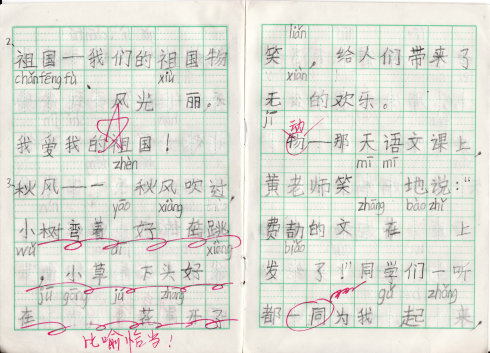 2.
祖国——我们的祖国物
chǎn fēng fù xiù
、风光 丽。
我爱我的祖国！
zhèn
3.
秋风—— 秋风吹过，
yāo xiàng
小树弯着 好 在跳
wǔ xiàng
。小草 下头好
jū gōng jú zhǎng
在 花 子
比喻恰当！
liǎn
笑 ，给人们带来了
xiàn
无 的欢乐。
jī
动
物——那天语文课上，
mī mī
黄老师笑 地说：“
zhāng bào zhǐ
的文 在 上
biǎo
发 了！”同学们一听
gǔ zhǎng
都一同为我 起 来